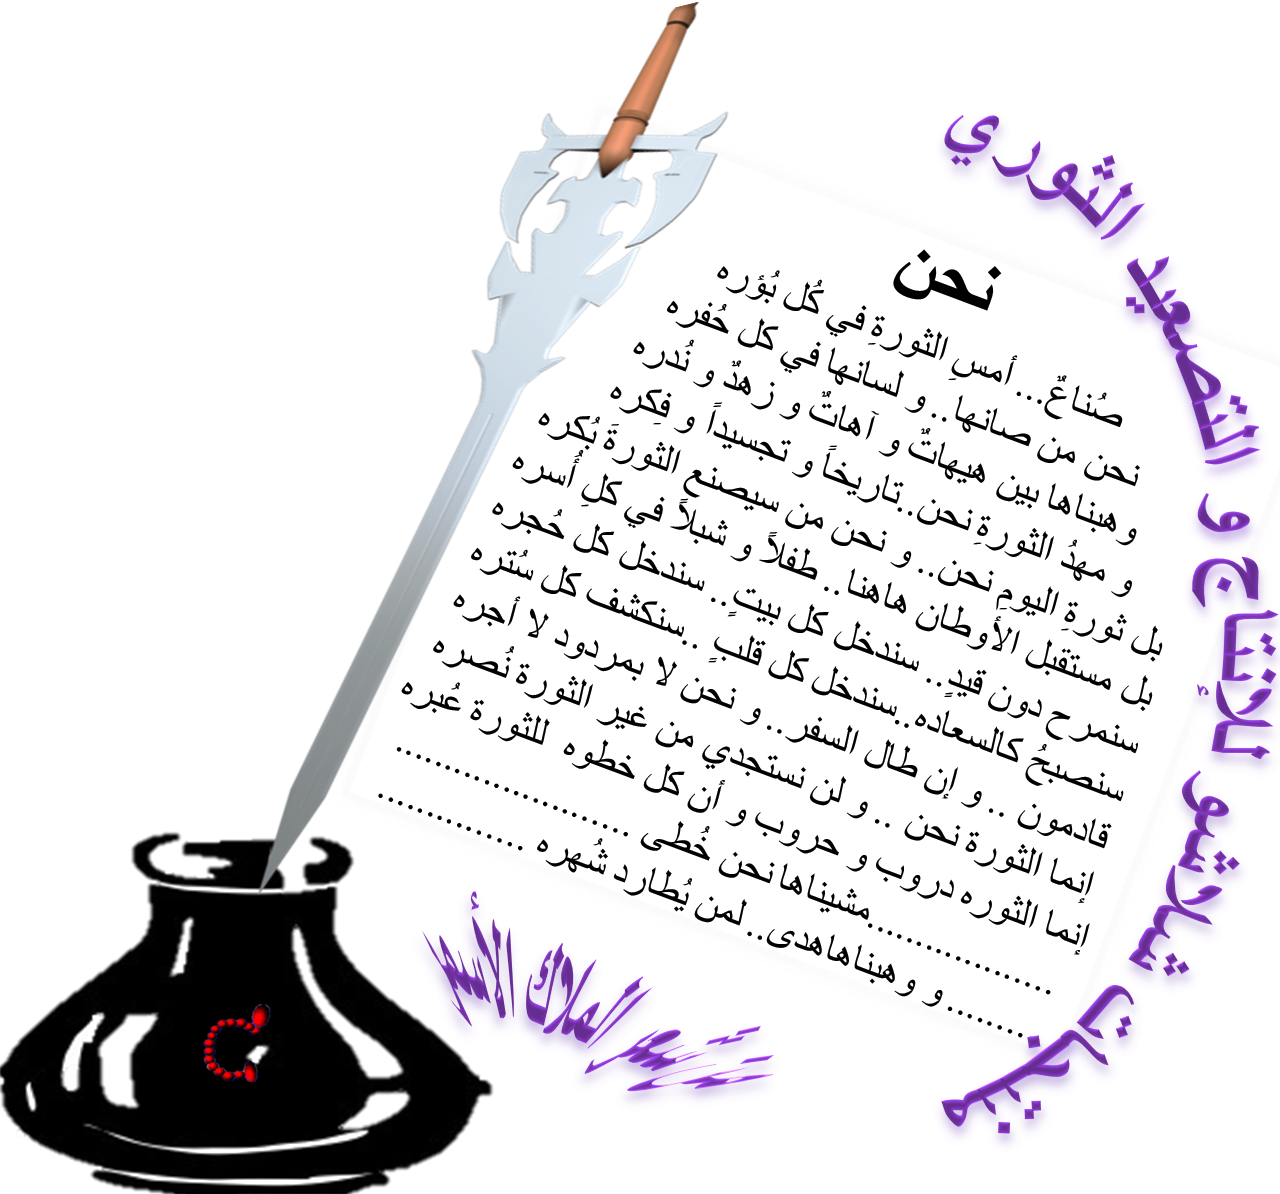 نحن
صُناعٌ... أمسِ الثورةِ في كُل بُؤره
نحن من صانها.. و لسانها في كل حُفره
وهبناها بين هيهاتٌ و آهاتٌ و زهدٌ و نُدره
و مهدُ الثورةِ نحن..تاريخاً و تجسيداً و فِكره
بل ثورةِ اليومِ نحن.. و نحن من سيصنع الثورةَ بُكره
بل مستقبل الأوطان هاهنا.. طفلاً و شبلاً في كلِ أُسره
سنمرح دون قيدٍ.. سندخل كل بيتٍ.. سندخل كل حُجره
سنصبحُ كالسعاده..سندخل كل قلبٍ ..سنكشف كل سُتره
قادمون .. و إن طال السفر.. و نحن لا بمردود لا أجره
إنما الثورة نحن .. و لن نستجدي من غير الثورة نُصره
إنما الثوره دروب و حروب و أن كل خطوه للثورة عُبره
..................مشيناها نحن خُطى ......................
......... و وهبناها هدى.. لمن يُطارد شُهره ..............
منتديات شلاشو للإنتاج و التصعيد الثوري
الملاك الأسمر